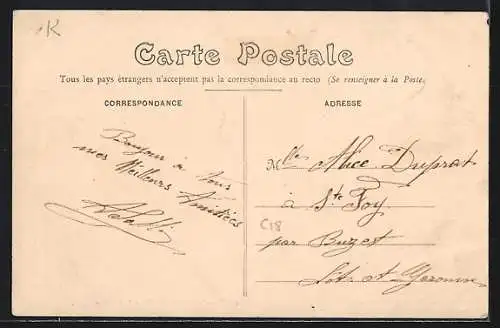 K
Carte Postale
Tous les pays étrangers n'acceptent pas la correspondance au recto (Se renseigner à la Poste.)
CORRESPONDANCE
Bonjour à tous
mes Meilleurs Amitiées
ADRESSE
Mlle Alice Duprat
à Ste Foy
C18
par Buzet
Lot et Garonne